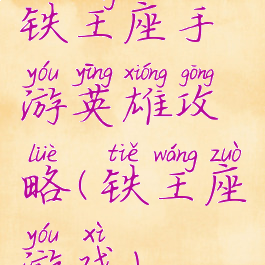 铁王座手
yóu yīng xióng gōng
游英雄攻
lüè tiě wáng zuò
略(铁王座
yóu xì
游戏)